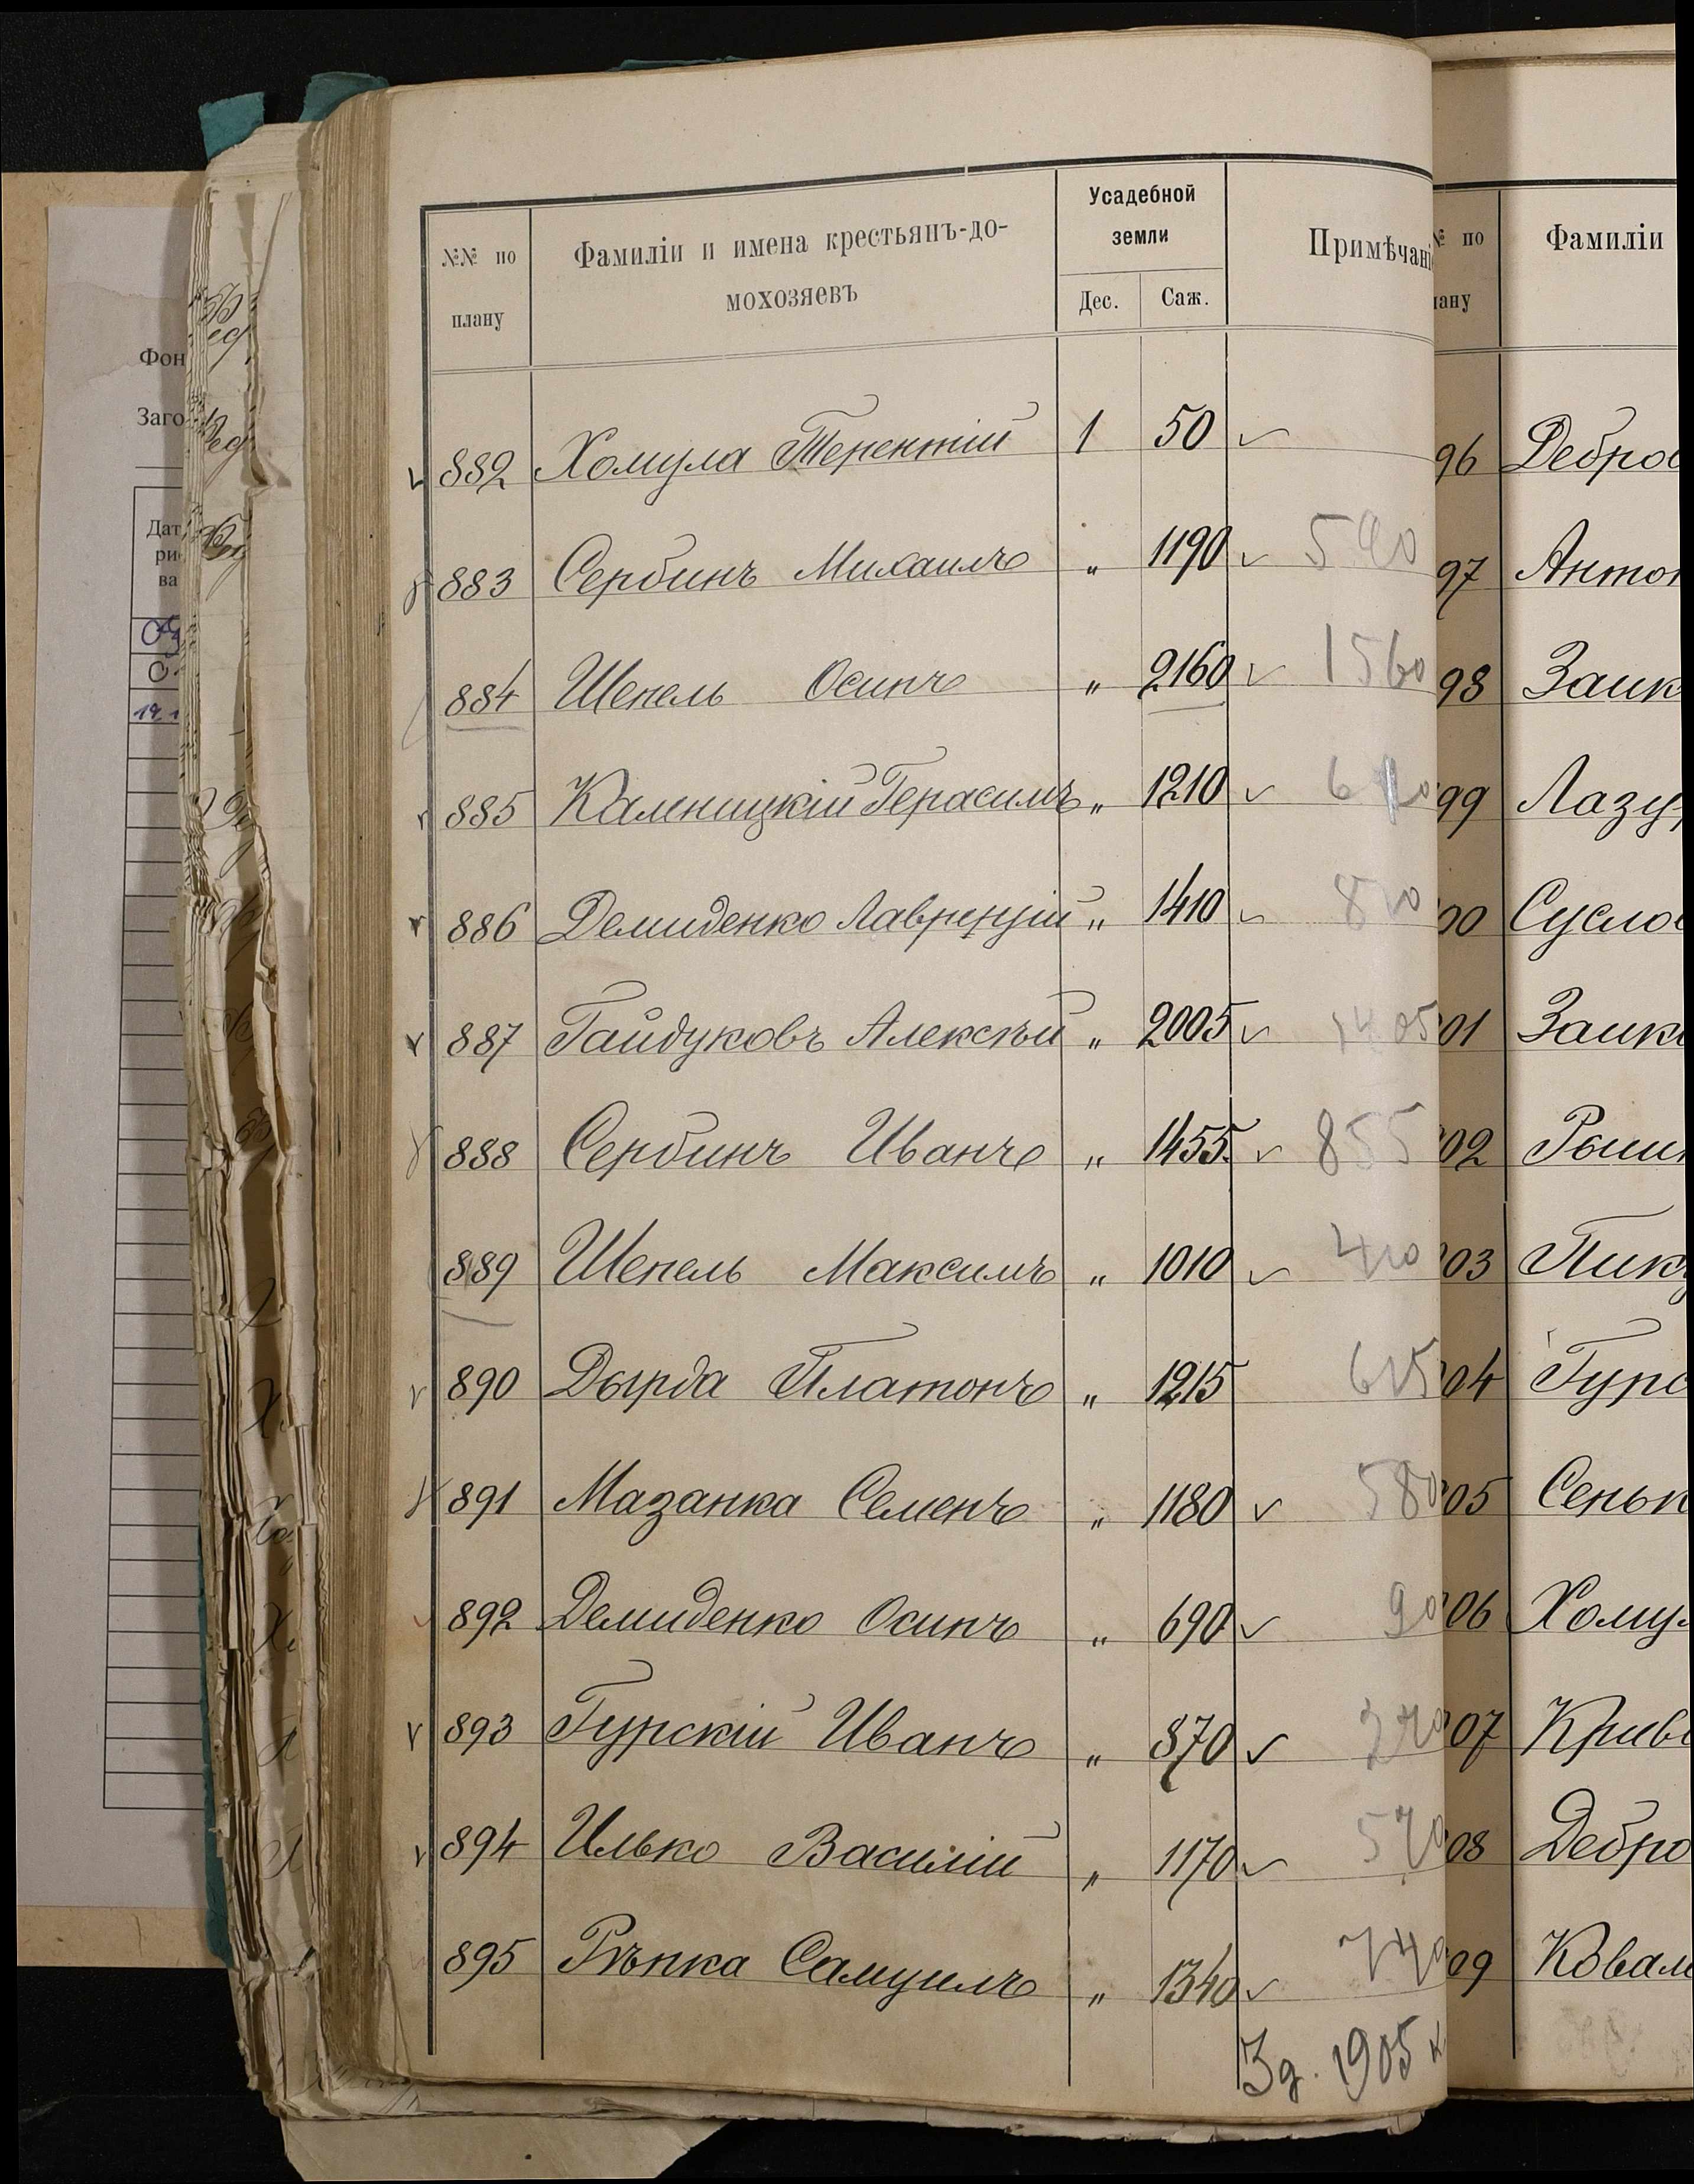 Усадебной
земли
№№ по
плану
Фамиліи и имена крестьянъ-до-
мохозяевъ
Дес. Саж.
Примѣчані
882 Хомула Терентій 1 50
883 Сербинъ Михаилъ „ 1190 590
884 Шепель Осипъ „ 2160 1560
885 Каменицкій Герасимъ „ 1210 610
886 Демиденко Лаврентій „ 1410 810
887 Гайдуковъ Алексѣй „ 2005 1405
888 Сербинъ Иванъ „ 1455 855
889 Шепель Максимъ „ 1010 410
890 Дырда Платонъ „ 1215 615
891 Мазанка Семенъ „ 1180 580
892 Демиденко Осипъ „ 690 90
893 Гурскій Иванъ „ 870 270
894 Илько Василій „ 1170 570
895 Рѣпка Самуилъ „ 1340 740
3 д. 1905 к
№ по
лану
Фамиліи
96 Дебров
97 Антон
98 Заик
99 Лазу
00 Сусло
01 Заик
02
03 Пик
04 Гурс
05 Сеньк
06 Хому
07 Крив
08 Дебро
09 Ковал
Фон
Заго
Дат
ри
ва